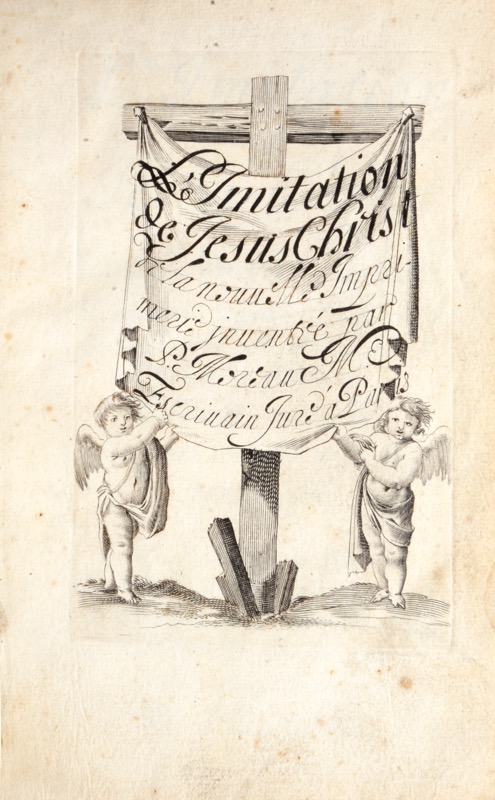 L'Imitation
de Jesus Christ
de la nouuelle Impri-
merie jnuentéé par
P. Moreau Me
Escriuain Juré à Paris